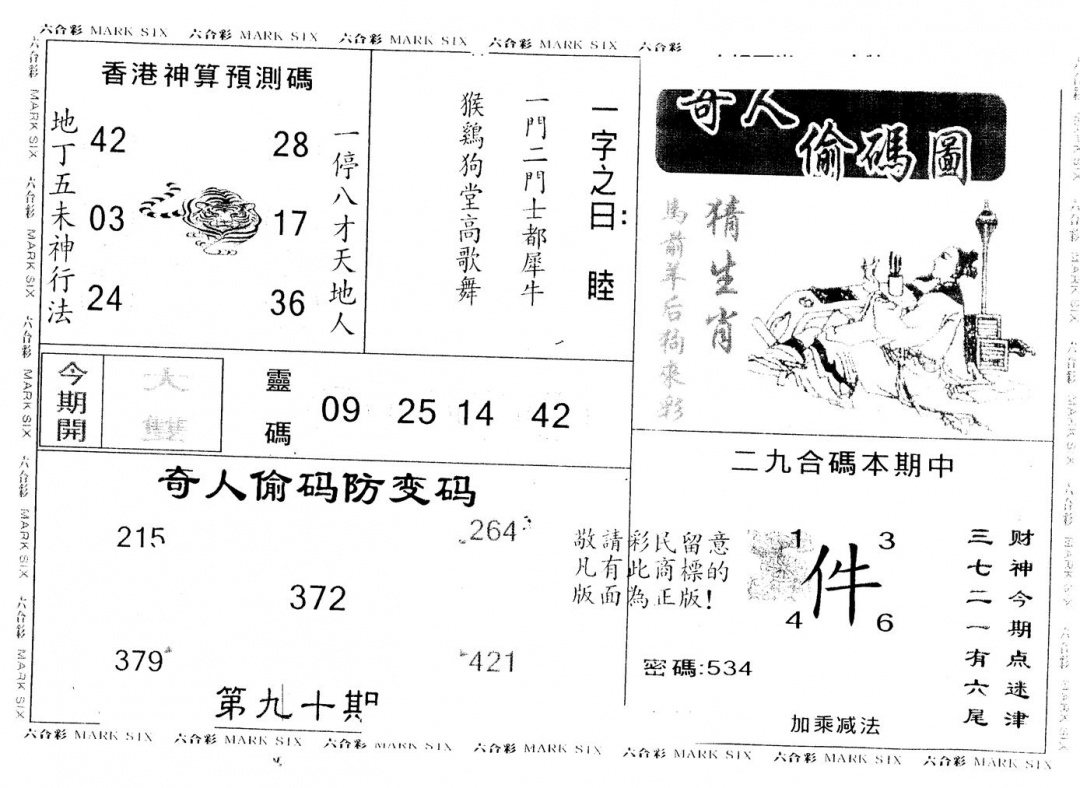 六合彩 MARK SIX 六合彩 MARK SIX 六合彩 MARK SIX 六合彩 MARK SIX 六合彩
香港神算預測碼
地丁五未神行法
42 28
03 17
24 36
一停八才天地人
一字之曰: 睦
一門二門士都犀牛
猴鷄狗堂高歌舞
奇人
偷碼圖
猜生肖
馬前羊后狗來彩
今期開
大
雙
靈碼
09 25 14 42
奇人偷码防变码
215 264
372
379 421
第九十期
二九合碼本期中
敬請彩民留意
凡有此商標的
版面為正版!
1 3
件
4 6
财神今期点迷津
三七二一有六尾
密碼:534
加乘减法
六合彩 MARK SIX 六合彩 MARK SIX 六合彩 MARK SIX 六合彩 MARK SIX 六合彩 MARK SIX 六合彩 MARK SIX 六合彩 MARK SIX
六合彩 MARK SIX 六合彩 MARK SIX 六合彩 MARK SIX 六合彩 MARK SIX 六合彩 MARK SIX